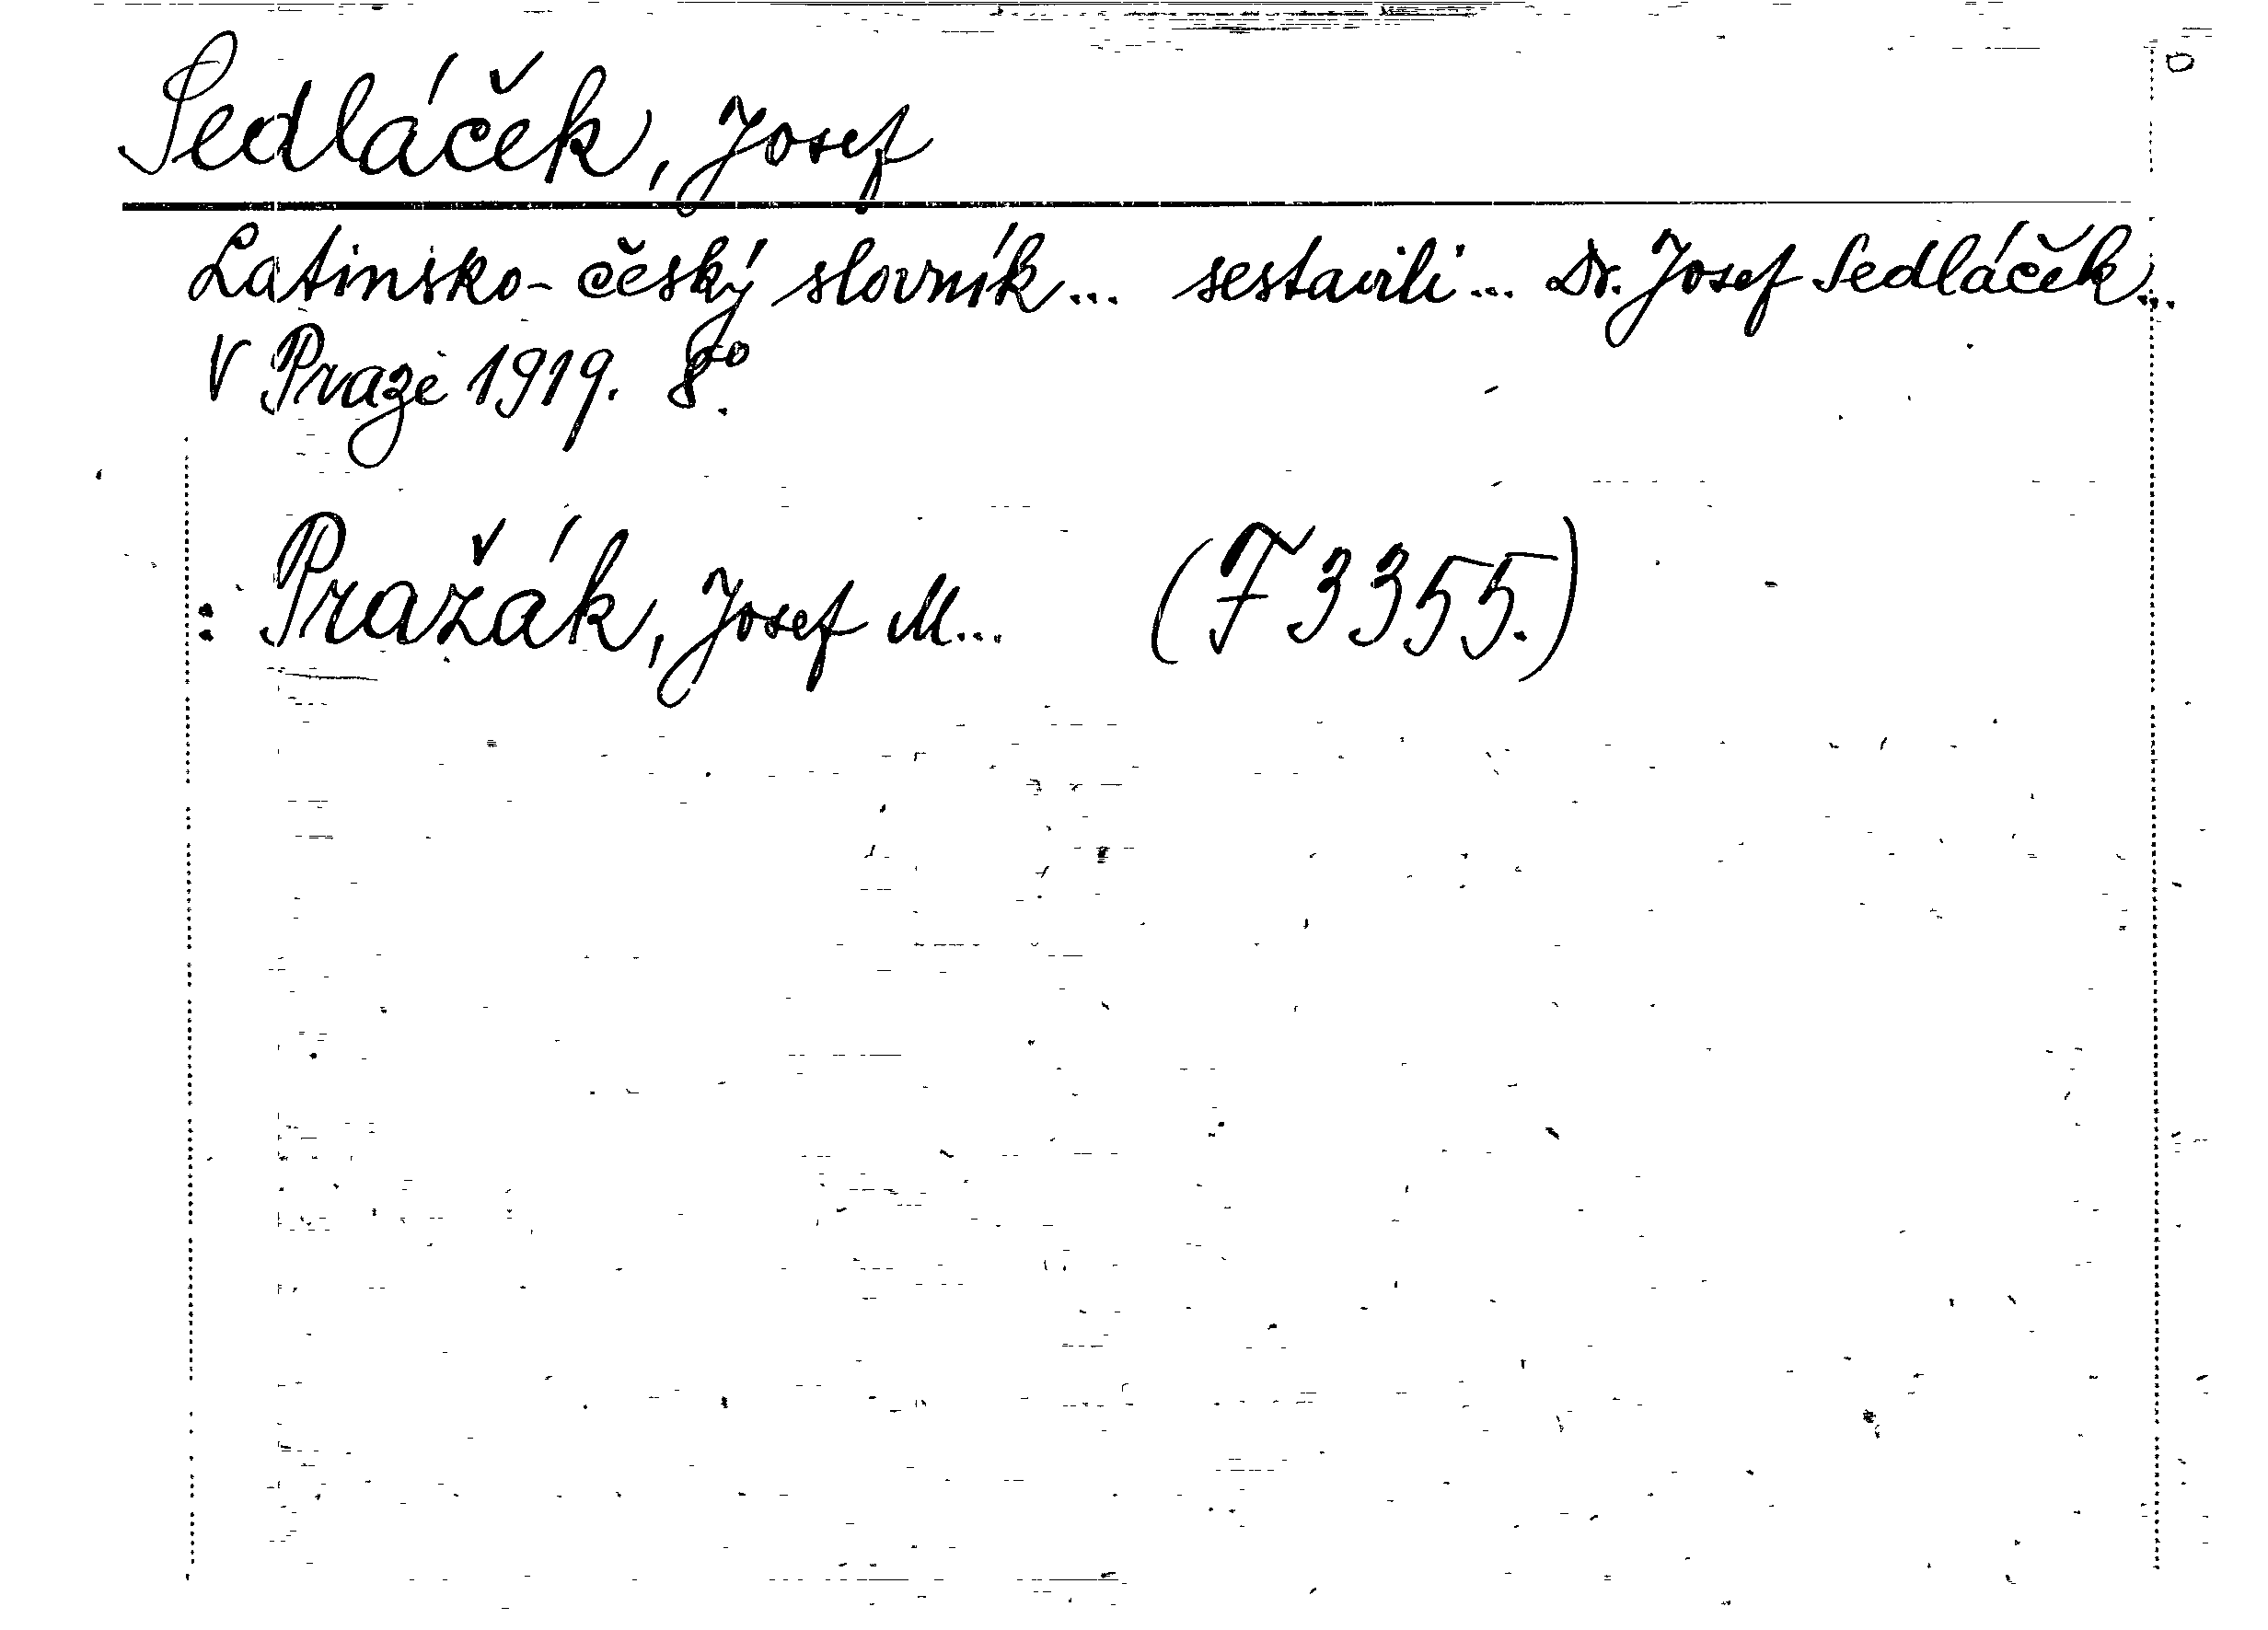 Sedláček, Josef
Latinsko-český slovník... sestavili... Dr. Josef Sedláček...
V Praze 1919. 8°.
: Pražák, Josef M... (F 3355.)